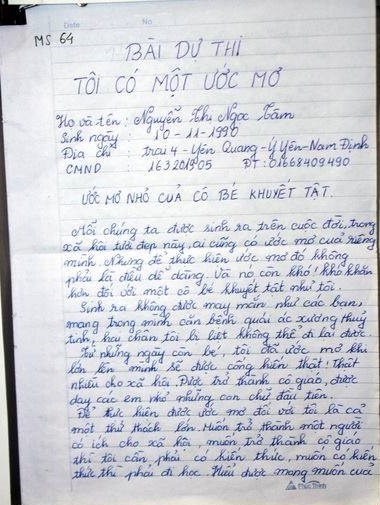 Date No
MS 64
BÀI DỰ THI
TÔI CÓ MỘT ƯỚC MƠ
Họ và tên : Nguyễn Thị Ngọc Tâm
Sinh ngày : 10 - 11 - 1990
Địa chỉ : trại 4 - Yên Quang - Ý Yên - Nam Định
CMND : 163201905 ĐT : 01668409490
ƯỚC MƠ NHỎ CỦA CÔ BÉ KHUYẾT TẬT.
Mỗi chúng ta được sinh ra trên cuộc đời, trong
xã hội tươi đẹp này, ai cũng có ước mơ của riêng
mình. Nhưng để thực hiện ước mơ đó không
phải là điều dễ dàng. Và nó còn khó! khó khăn
hơn đối với một cô bé khuyết tật như tôi.
Sinh ra không được may mắn như các bạn,
mang trong mình căn bệnh quái ác xương thuỷ
tinh, hai chân tôi bị liệt không thể đi lại được.
Từ những ngày còn bé, tôi đã ước mơ khi
lớn lên mình sẽ được cống hiến thật! thật
nhiều cho xã hội. Được trở thành cô giáo, được
dạy các em nhỏ những con chữ đầu tiên.
Để thực hiện được ước mơ đối với tôi là cả
một thử thách lớn. Muốn trở thành một người
có ích cho xã hội, muốn trở thành cô giáo
thì tôi cần phải có kiến thức, muốn có kiến
thức thì phải đi học. Hiểu được mong muốn của